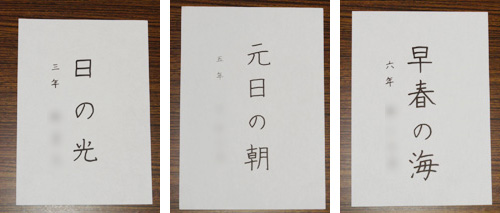 日の光
三年
元日の朝
五年
早春の海
六年